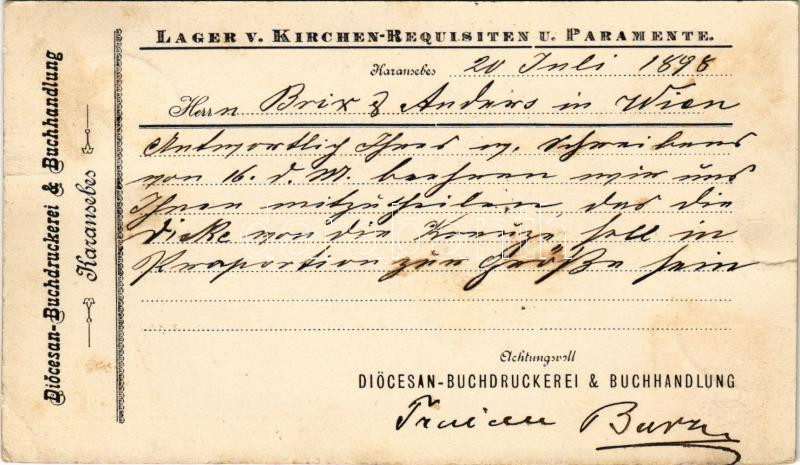 LAGER V. KIRCHEN-REQUISITEN U. PARAMENTE.
Karansebes 20 Juli 1898
Herrn Brix & Anders in Wien
Antwortlich Ihres w. Schreibens
von 16. d. M. beehren wir uns
Ihnen mitzutheilen, das die
Dicke von die Kreuze soll in
Proportion zur Größe sein
Achtungsvoll
DIÖCESAN-BUCHDRUCKEREI & BUCHHANDLUNG
Traian
Diöcesan-Buchdruckerei & Buchhandlung
Karansebes